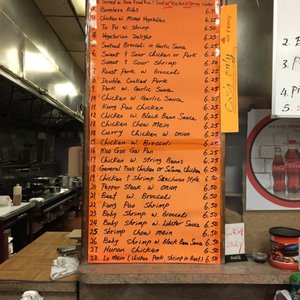 Served w. Pork Fried Rice
Boneless Ribs 6.25
Chicken w. Mixed Vegetables 6.25
To Fu w. Shrimp 6.25
4 Vegetarian Delight 6.25
Seafood Broccoli in Garlic Sauce 6.25
6 Sweet & Sour Chicken or Pork 6.25
Sweet & Sour Shrimp 6.50
7 Roast Pork w. Broccoli 6.25
8 Double Cooked Pork 6.25
9 Pork w. Garlic Sauce 6.25
10 Chicken w. Garlic Sauce 6.25
11 Kung Pao Chicken 6.25
12 Chicken w. Black Bean Sauce 6.25
13 Chicken Chow Mein 6.25
14 Curry Chicken w. onion 6.25
15 Chicken w. Broccoli 6.25
16 Moo Goo Gai Pan 6.25
17 Chicken w. String Beans 6.25
18 General Tso's Chicken or Sesame Chicken 6.50
19 Chicken & Shrimp Szechuan Style 6.50
20 Pepper Steak w. onion 6.50
21 Beef w. Broccoli 6.50
22 Kung Pao Shrimp 6.50
23 Baby Shrimp w Broccoli 6.50
24 Baby Shrimp w. Lobster Sauce 6.50
25 Shrimp chow mein 6.50
26 Baby Shrimp w Black Bean Sauce 6.50
27 Hunan Chicken 6.50
28 Lo Mein (Chicken, Pork, Shrimp or Beef) 6.50
Cash only
CASH
ONLY
2.
3.
4.
5.